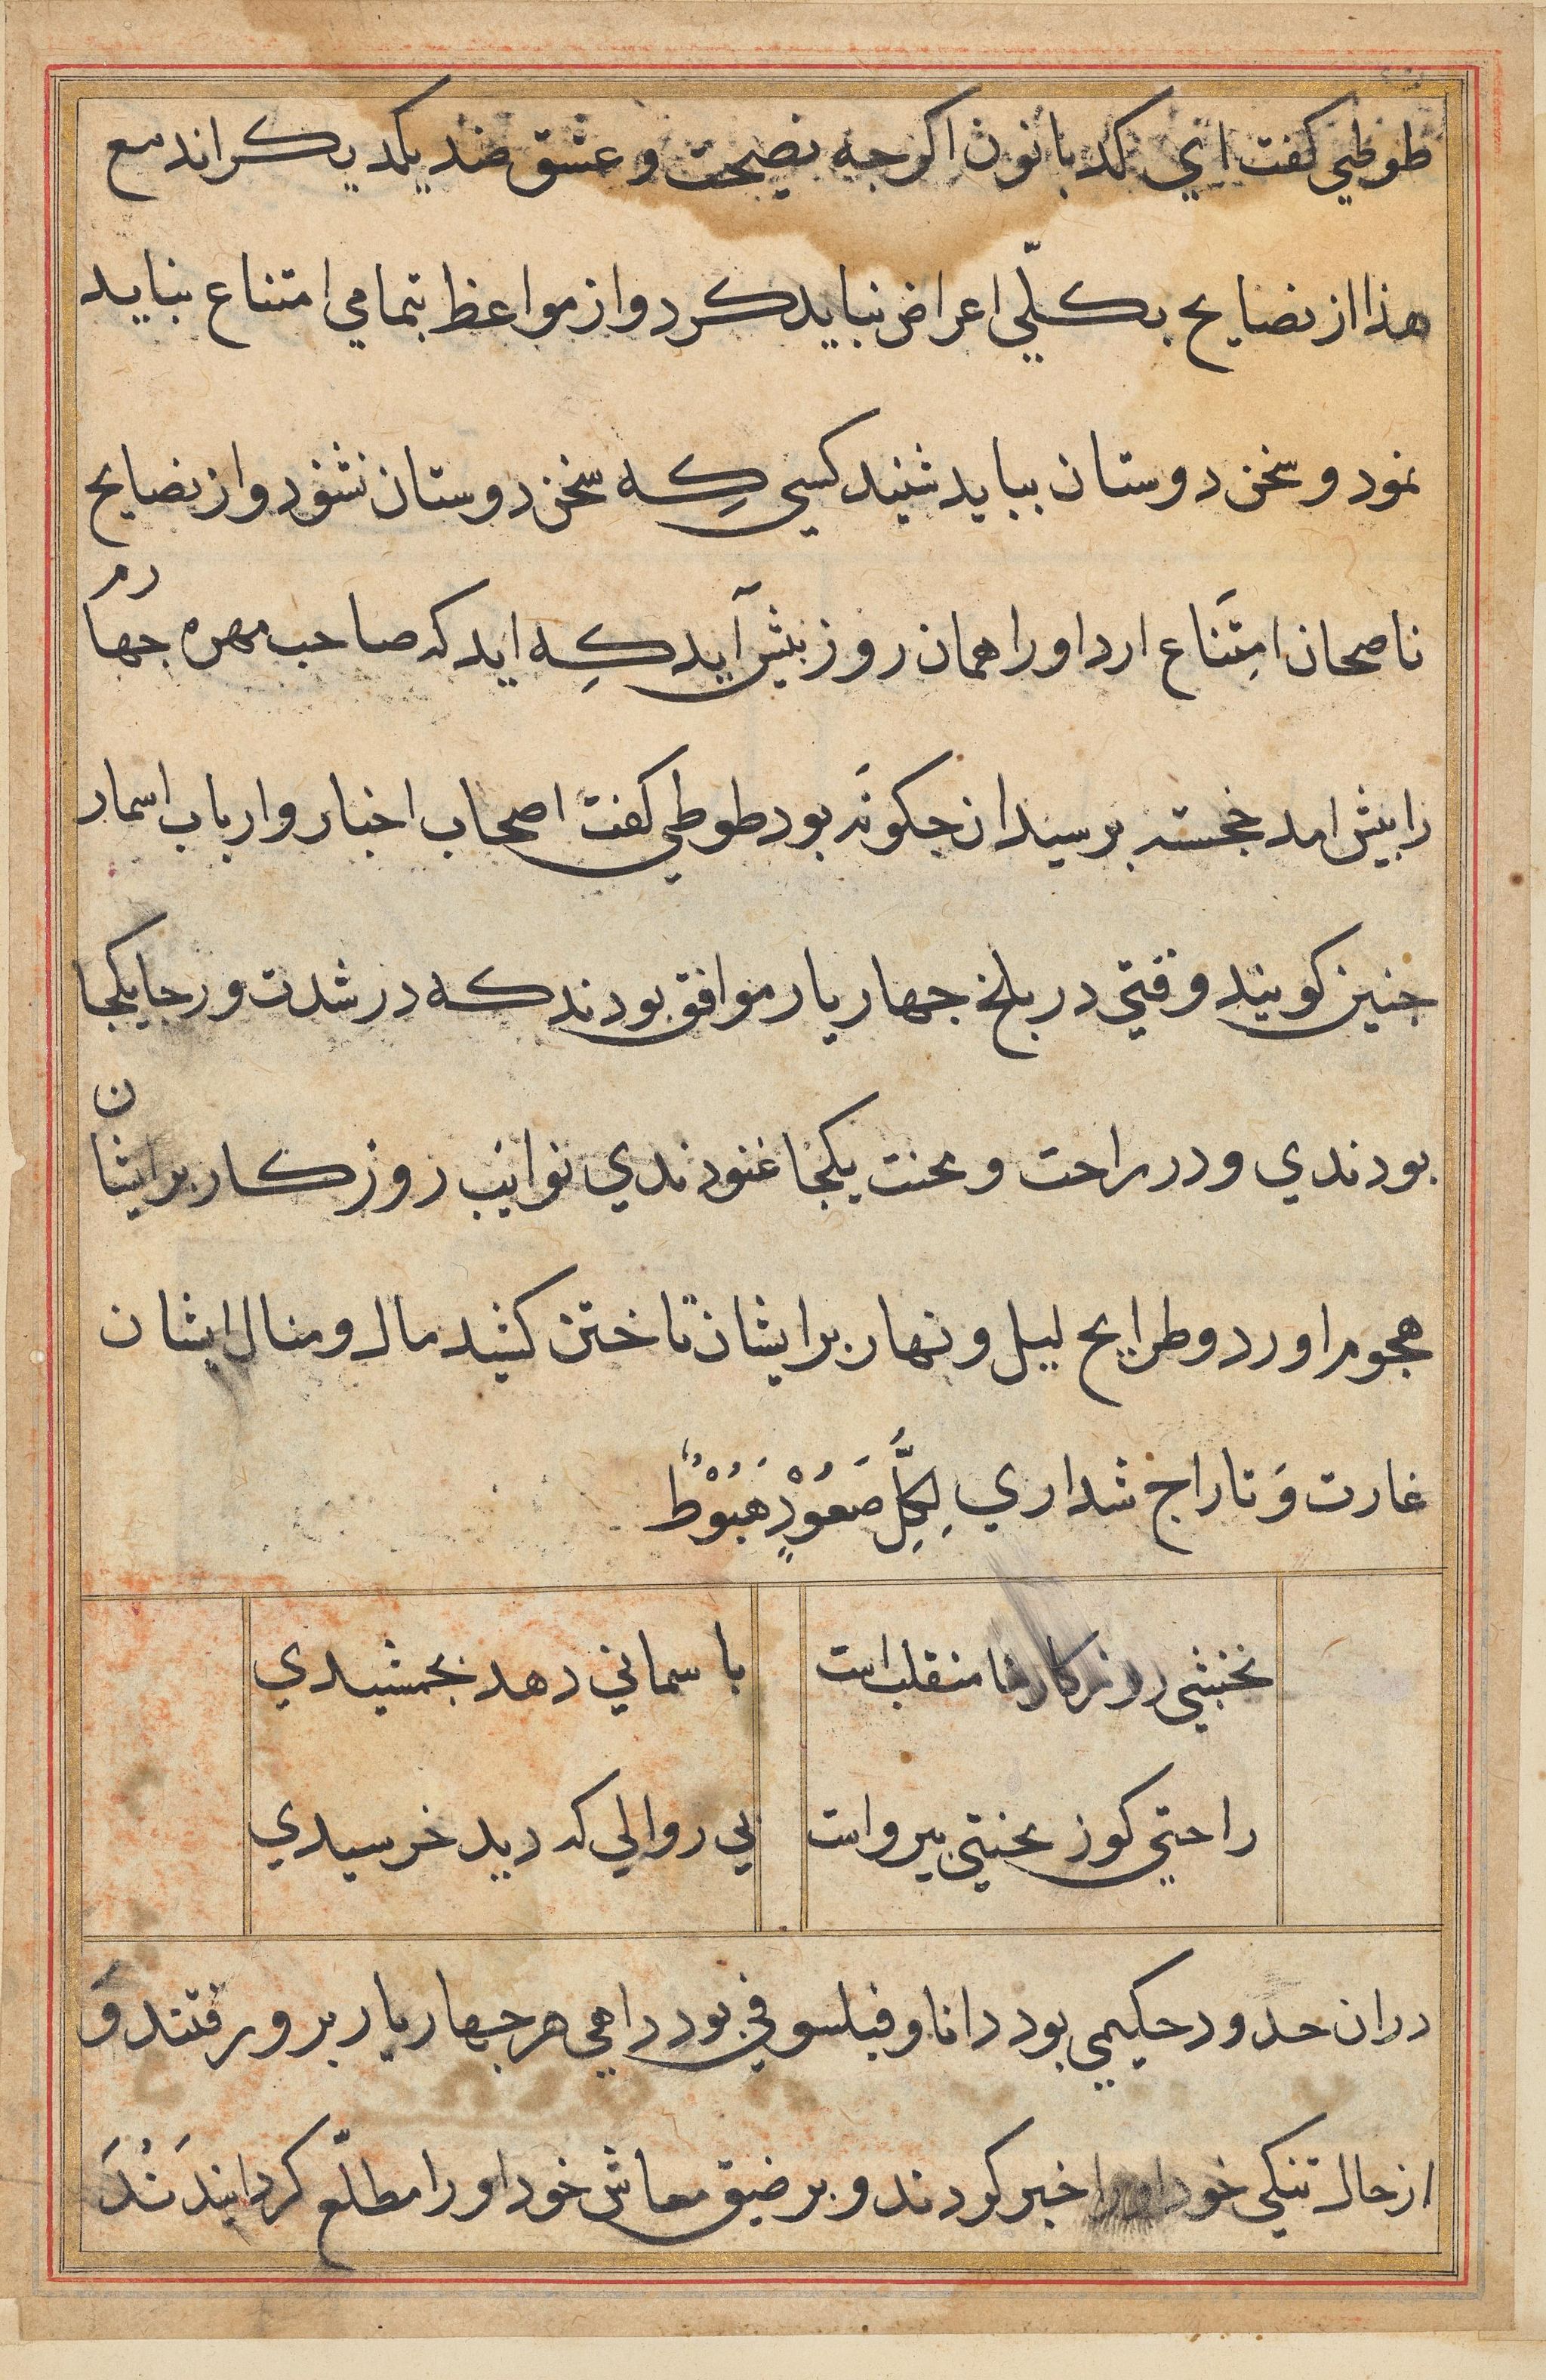 طوطي كفت اي كد بانون اكرجه نصيحت و عشق ضد يكديكر اند مع
هذا از نصايح بكلّي اعراض نبايد كرد و از مواعظ بتمامي امتناع نبايد
نمود و سخن دوستان ببايد شنيد كسي كِه سخن دوستان نشنود و از نصايح
ناصحان امتَناع ارد او را همان روز بيش آيد كِه ايد كه صاحب مهره جهارم
را بيش امد خجسته برسيد ان جكونَه بود طوطي كفت اصحاب اخبار و ارباب اسمار
جنين كويند وقتي در بلخ جهار يار موافق بودند كه در شدت و رجا يكجا
بودندي و در راحت و محنت يكجا غنودندي نوايب روزكار بر ايشان
هجوم اورد و طرايح ليل و نهار بر ايشان تاختن كشيد مال و منال ايشان
غارت وَ تاراج شد اري لِكُلِّ صَعُوْدٍ هَبُوْطٌ
نخشبي روزكارها منقلب است
با سماني دهد بجمشيدي
راحتي كوز محنتي بيرواست
بي روالي كه ديد خرسيدي
دران حدود حكيمي بود دانا و فيلسوفي بود داهي هر جهار يار بر و رفتند وَ
از حال تنكي خود او را خبر كردند و بر ضيق معاش خود او را مطلّع كردانيدَنْدَ